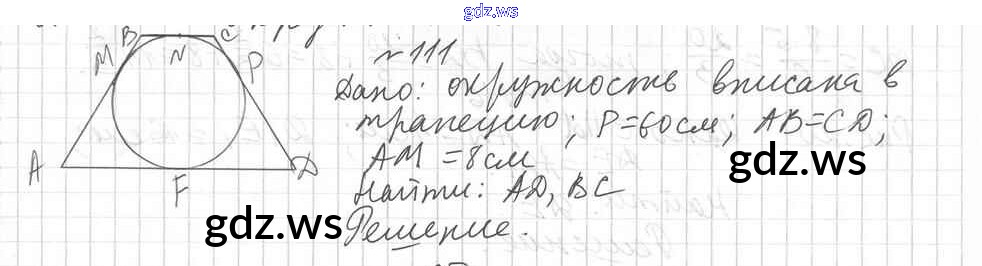 gdz.ws
№ 111
B N C
M P
Дано: окружность вписана в
трапецию; P=60см; AB=CD;
AM =8см
A F D
Найти: AD, BC
gdz.ws
gdz.ws
Решение.